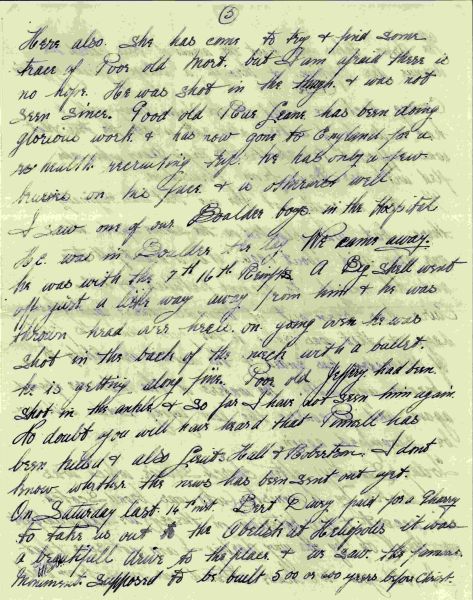 (5)
Here also. She has come to try & find some
trace of Poor old Mort. but I am afraid there is
no hope. He was shot in the thigh. & was not
seen since. Good old has been doing
glorious work & has now gone to England for a
recruiting He has only a few
on his face & is otherwise well
I saw one of our Boulder boys. in the Hospital
He. was in Boulder the day We came away.
he was with the 7th 16th Reinfs A Big shell went
off just a little way away from him & he was
thrown head over heels. on going over he was
shot in the back of the neck with a bullet.
he is getting along fine. Poor old Jeffery had been
shot in the ankle & so far I have not seen him again.
No doubt you will have heard that has
been killed & also Lieuts Hall & Roberton. I dont
know whether the news has been sent out yet.
On Saturday last 14th inst. Bert Davey paid for a
to take us out to the Obelisk at Heliopolis it was
a beautifull drive to the place & we saw. the famous
Monument supposed to be built 500 or 600 years before Christ.